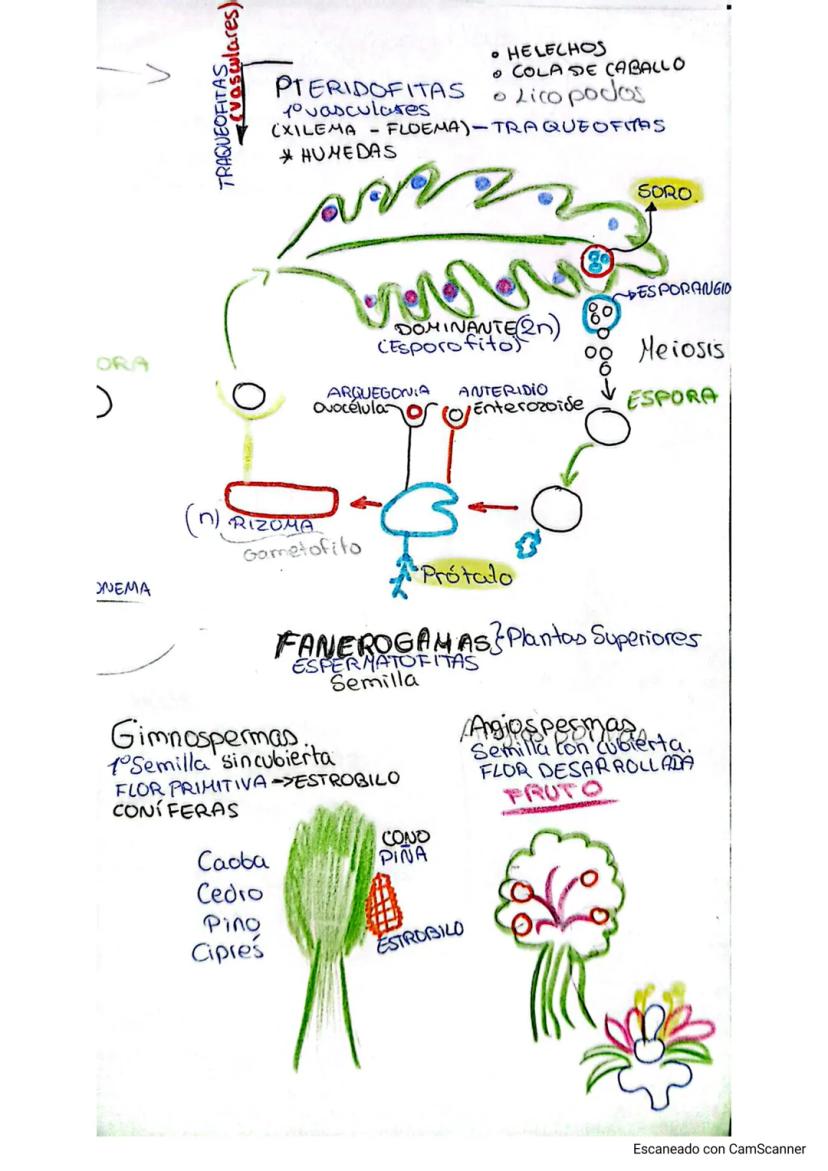 TRAQUEOFITAS
(vasculares)
• HELECHOS
• COLA DE CABALLO
• Licopodos
PTERIDOFITAS
1º vasculares
(XILEMA - FLOEMA) - TRAQUEOFITAS
* HUMEDAS
SORO
ESPORANGIO
DOMINANTE (2n)
(Esporofito)
Meiosis
ORA
ARQUEGONIA
Ovocélula
ANTERIDIO
Enterozoide
ESPORA
(n) RIZOMA
Gametofito
Prótalo
ONEMA
FANEROGAMAS } Plantas Superiores
ESPERMATOFITAS
Semilla
Gimnospermas
1º Semilla sin cubierta
FLOR PRIMITIVA -> ESTROBILO
CONÍFERAS
Angiospermas
Semilla con cubierta.
FLOR DESARROLLADA
FRUTO
Caoba
Cedro
Pino
Ciprés
CONO
PIÑA
ESTROBILO
Escaneado con CamScanner